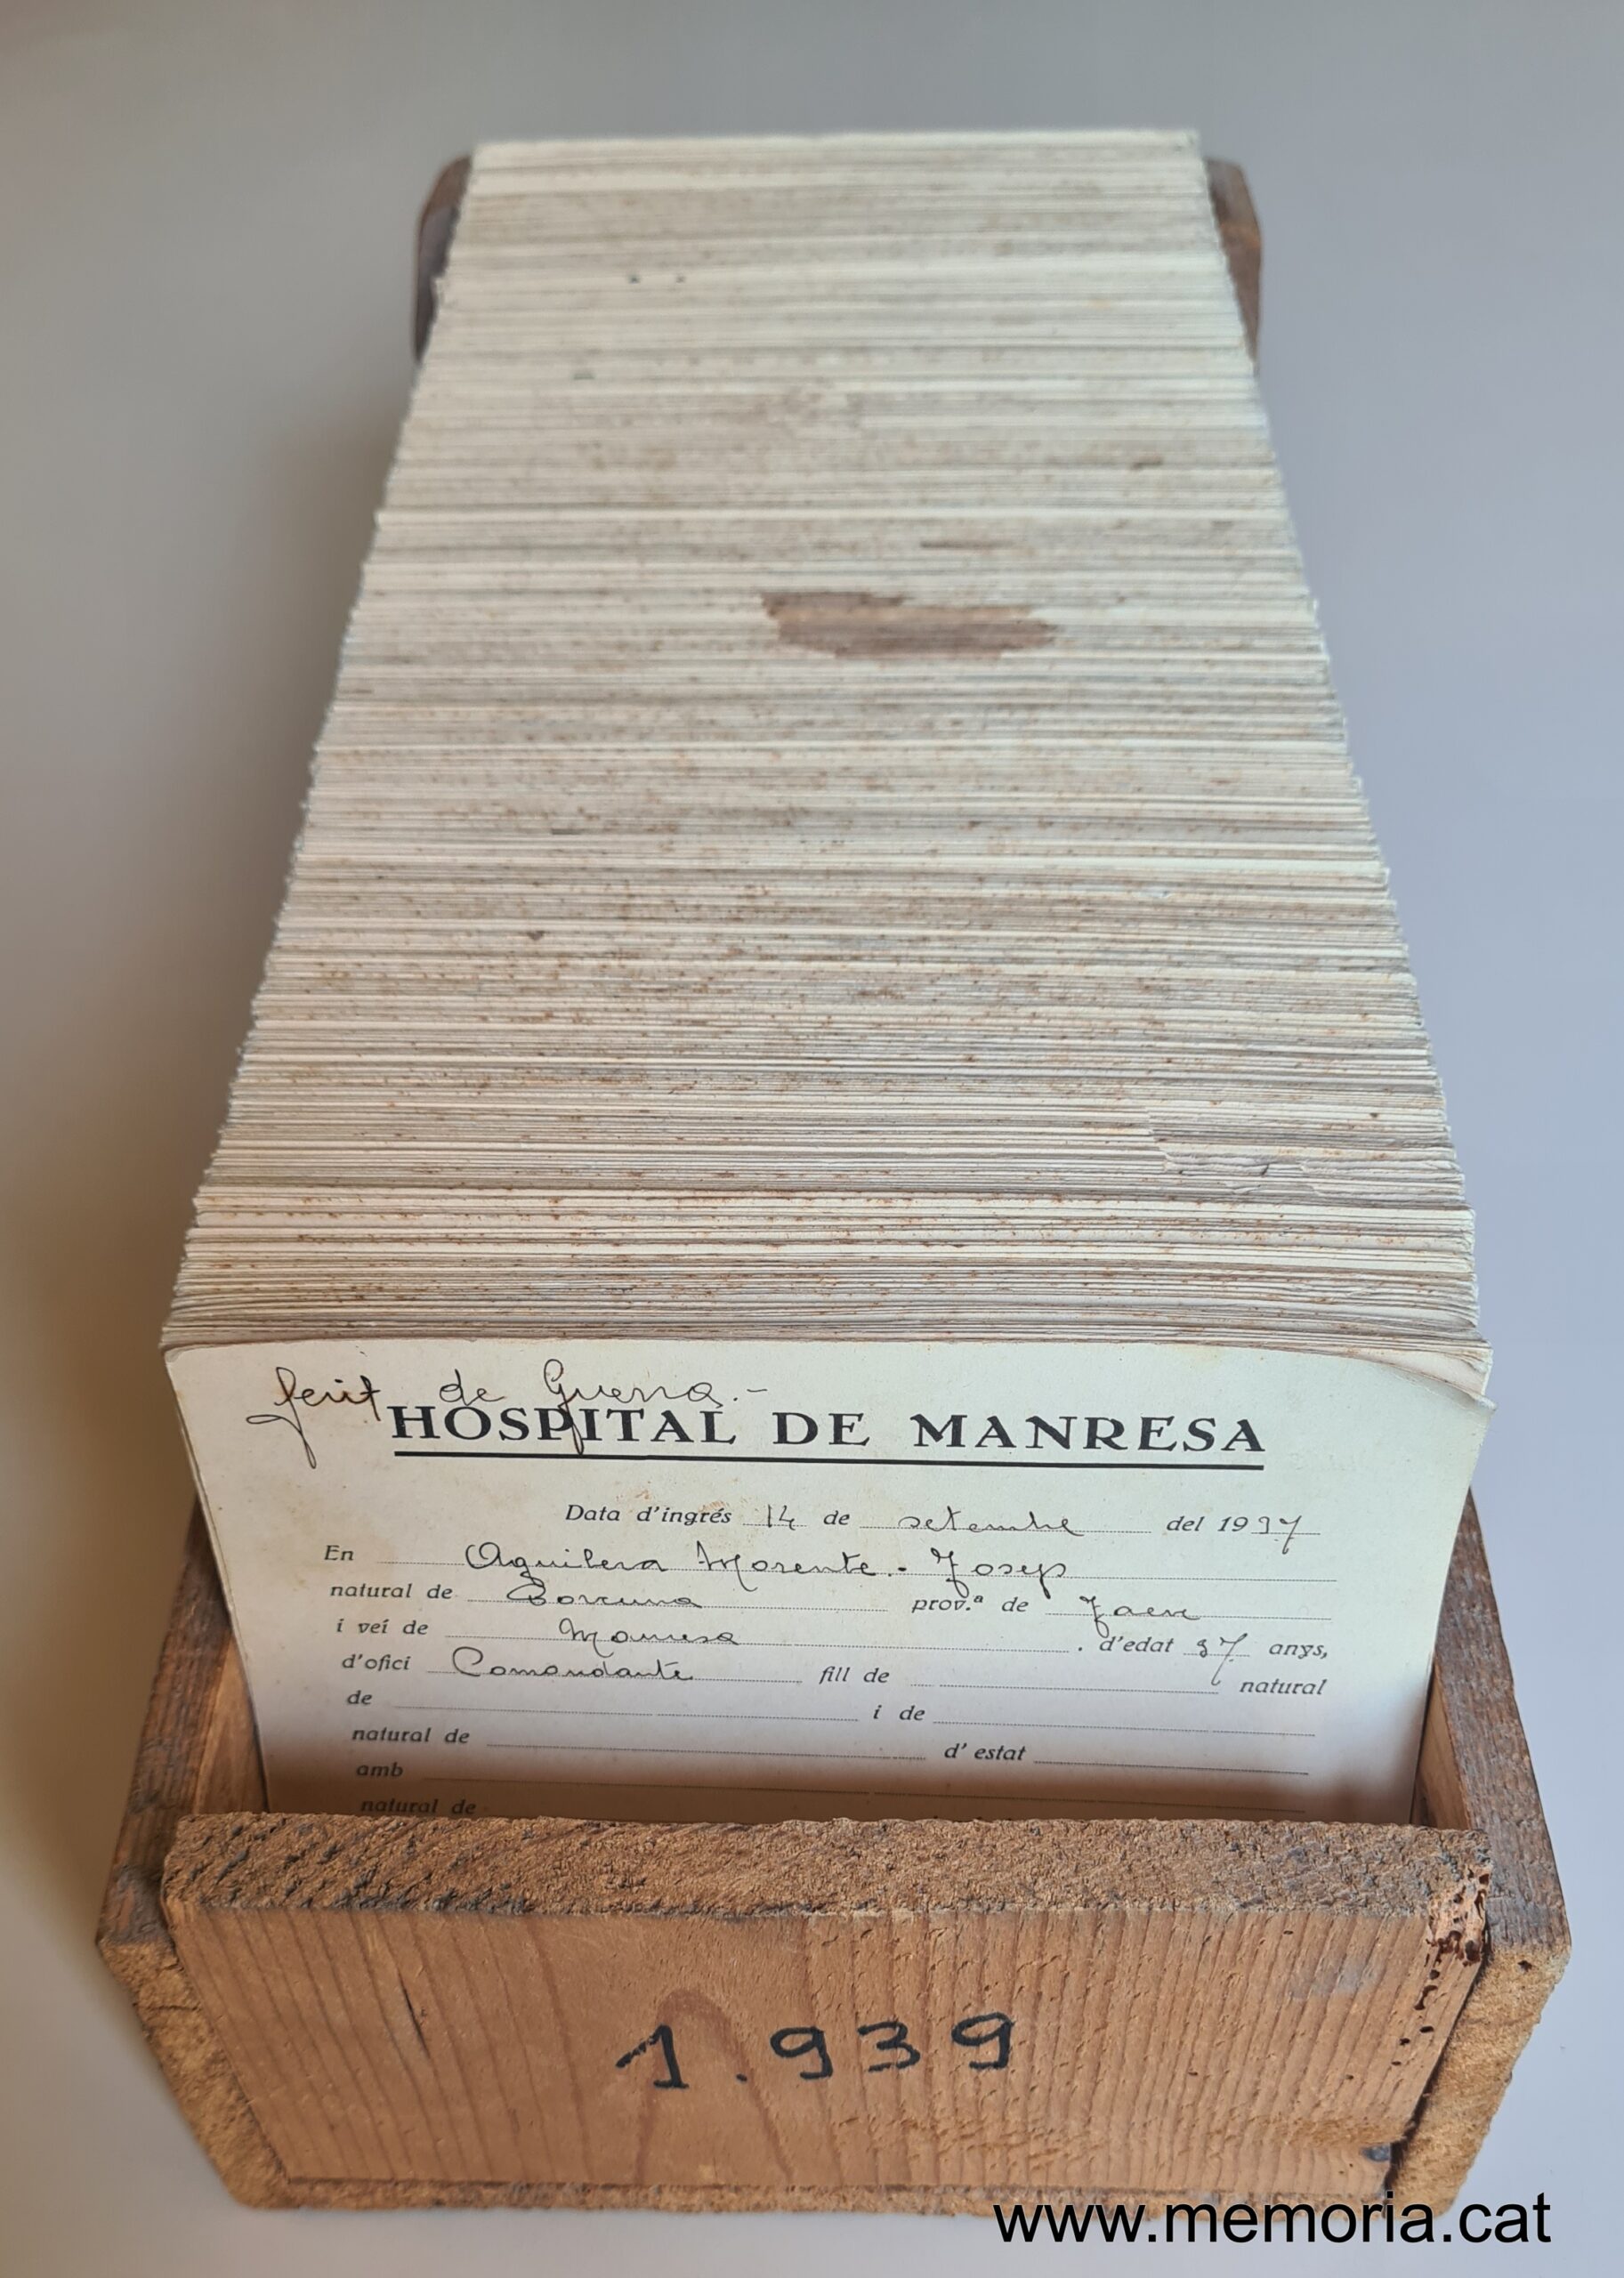 ferit de Guerra.-
HOSPITAL DE MANRESA
Data d'ingrés 14 de setembre del 1937
En Aguilera Morente.- Josep
natural de Porcuna prov.ª de Jaen
i veí de Manresa . d'edat 37 anys,
d'ofici Comandante fill de natural
de i de
natural de d'estat
amb
natural de
1.939
www.memoria.cat